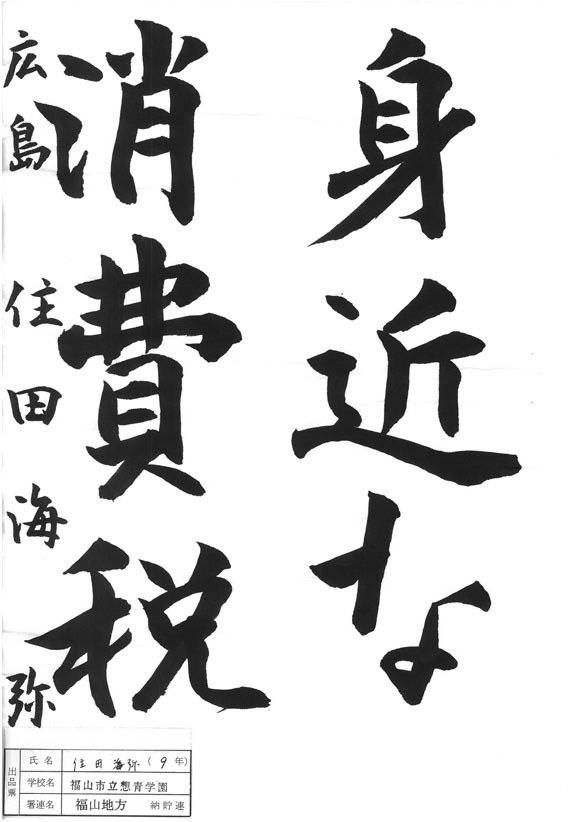 身近な
消費税
広島 住田海弥
出品票
氏名 住田海弥(9年)
学校名 福山市立想青学園
署連名 福山地方 納貯連